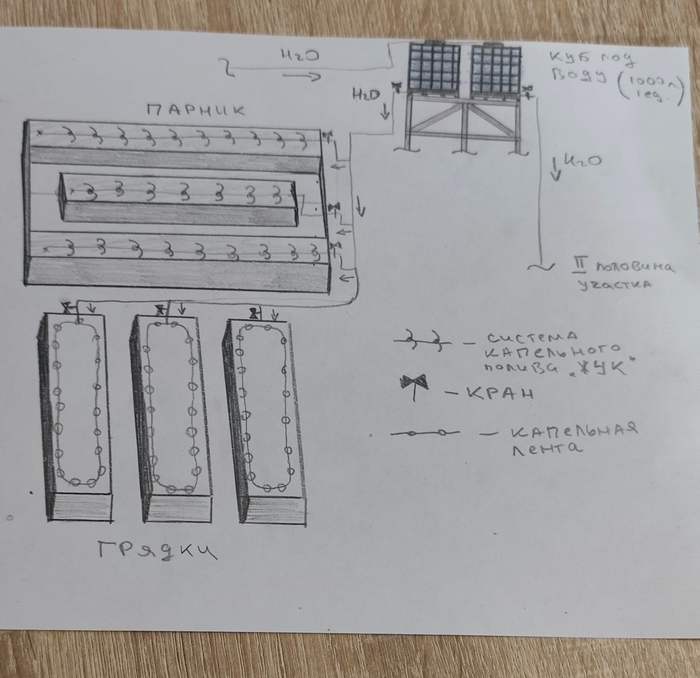 H₂O
КУБ ПОД
ВОДУ (1000 л
1 ед.)
H₂O
ПАРНИК
H₂O
II ПОЛОВИНА
УЧАСТКА
СИСТЕМА
КАПЕЛЬНОГО
ПОЛИВА „ЖУК“
КРАН
КАПЕЛЬНАЯ
ЛЕНТА
ГРЯДКИ